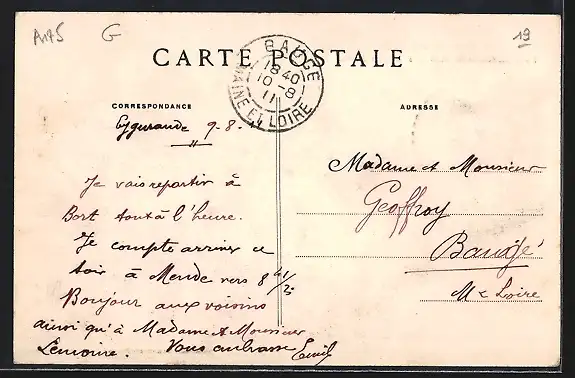 A175
G
19
CARTE POSTALE
BAUGE
18 40
10 -8
11
MAINE ET LOIRE
CORRESPONDANCE
ADRESSE
Eygurande 9-8-11
Je vais repartir à
Bort tout à l'heure.
Je compte arriver ce
soir à Mende vers 8 h 1/2
Bonjour aux voisins
ainsi qu'à Madame et Monsieur
Lemoine. Vous embrasse Emile
Madame et Monsieur
Geoffroy
Baugé
M & Loire